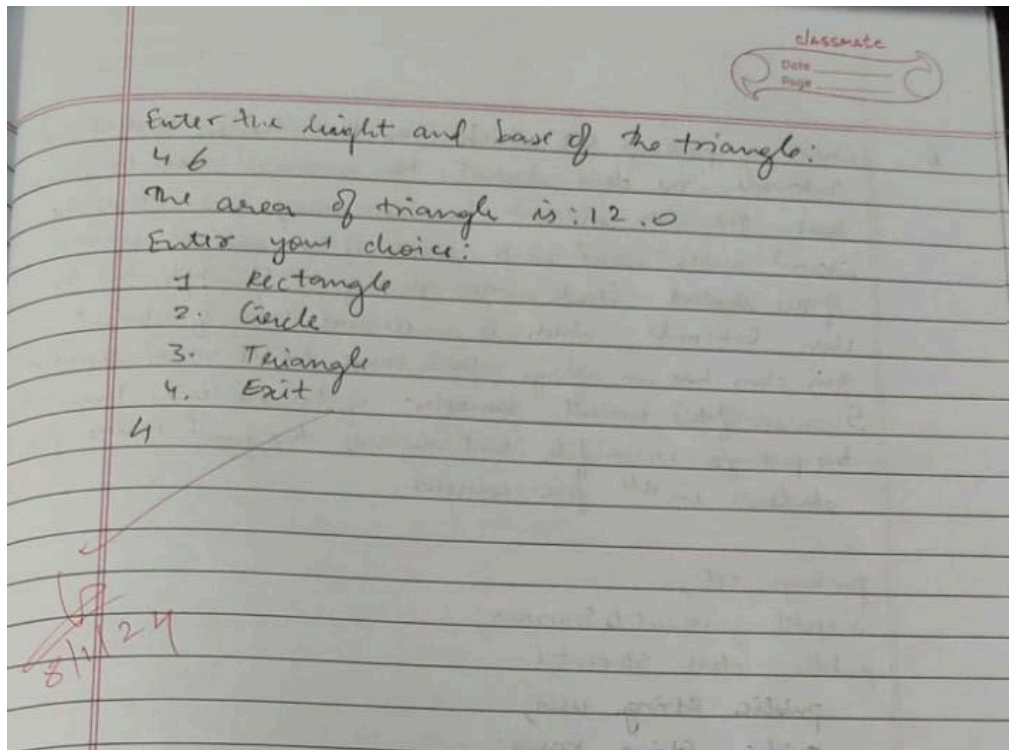 classmate
Date
Page
Enter the height and base of the triangle:
4 6
The area of triangle is: 12.0
Enter your choice:
1. Rectangle
2. Circle
3. Triangle
4. Exit
4
8/1/24